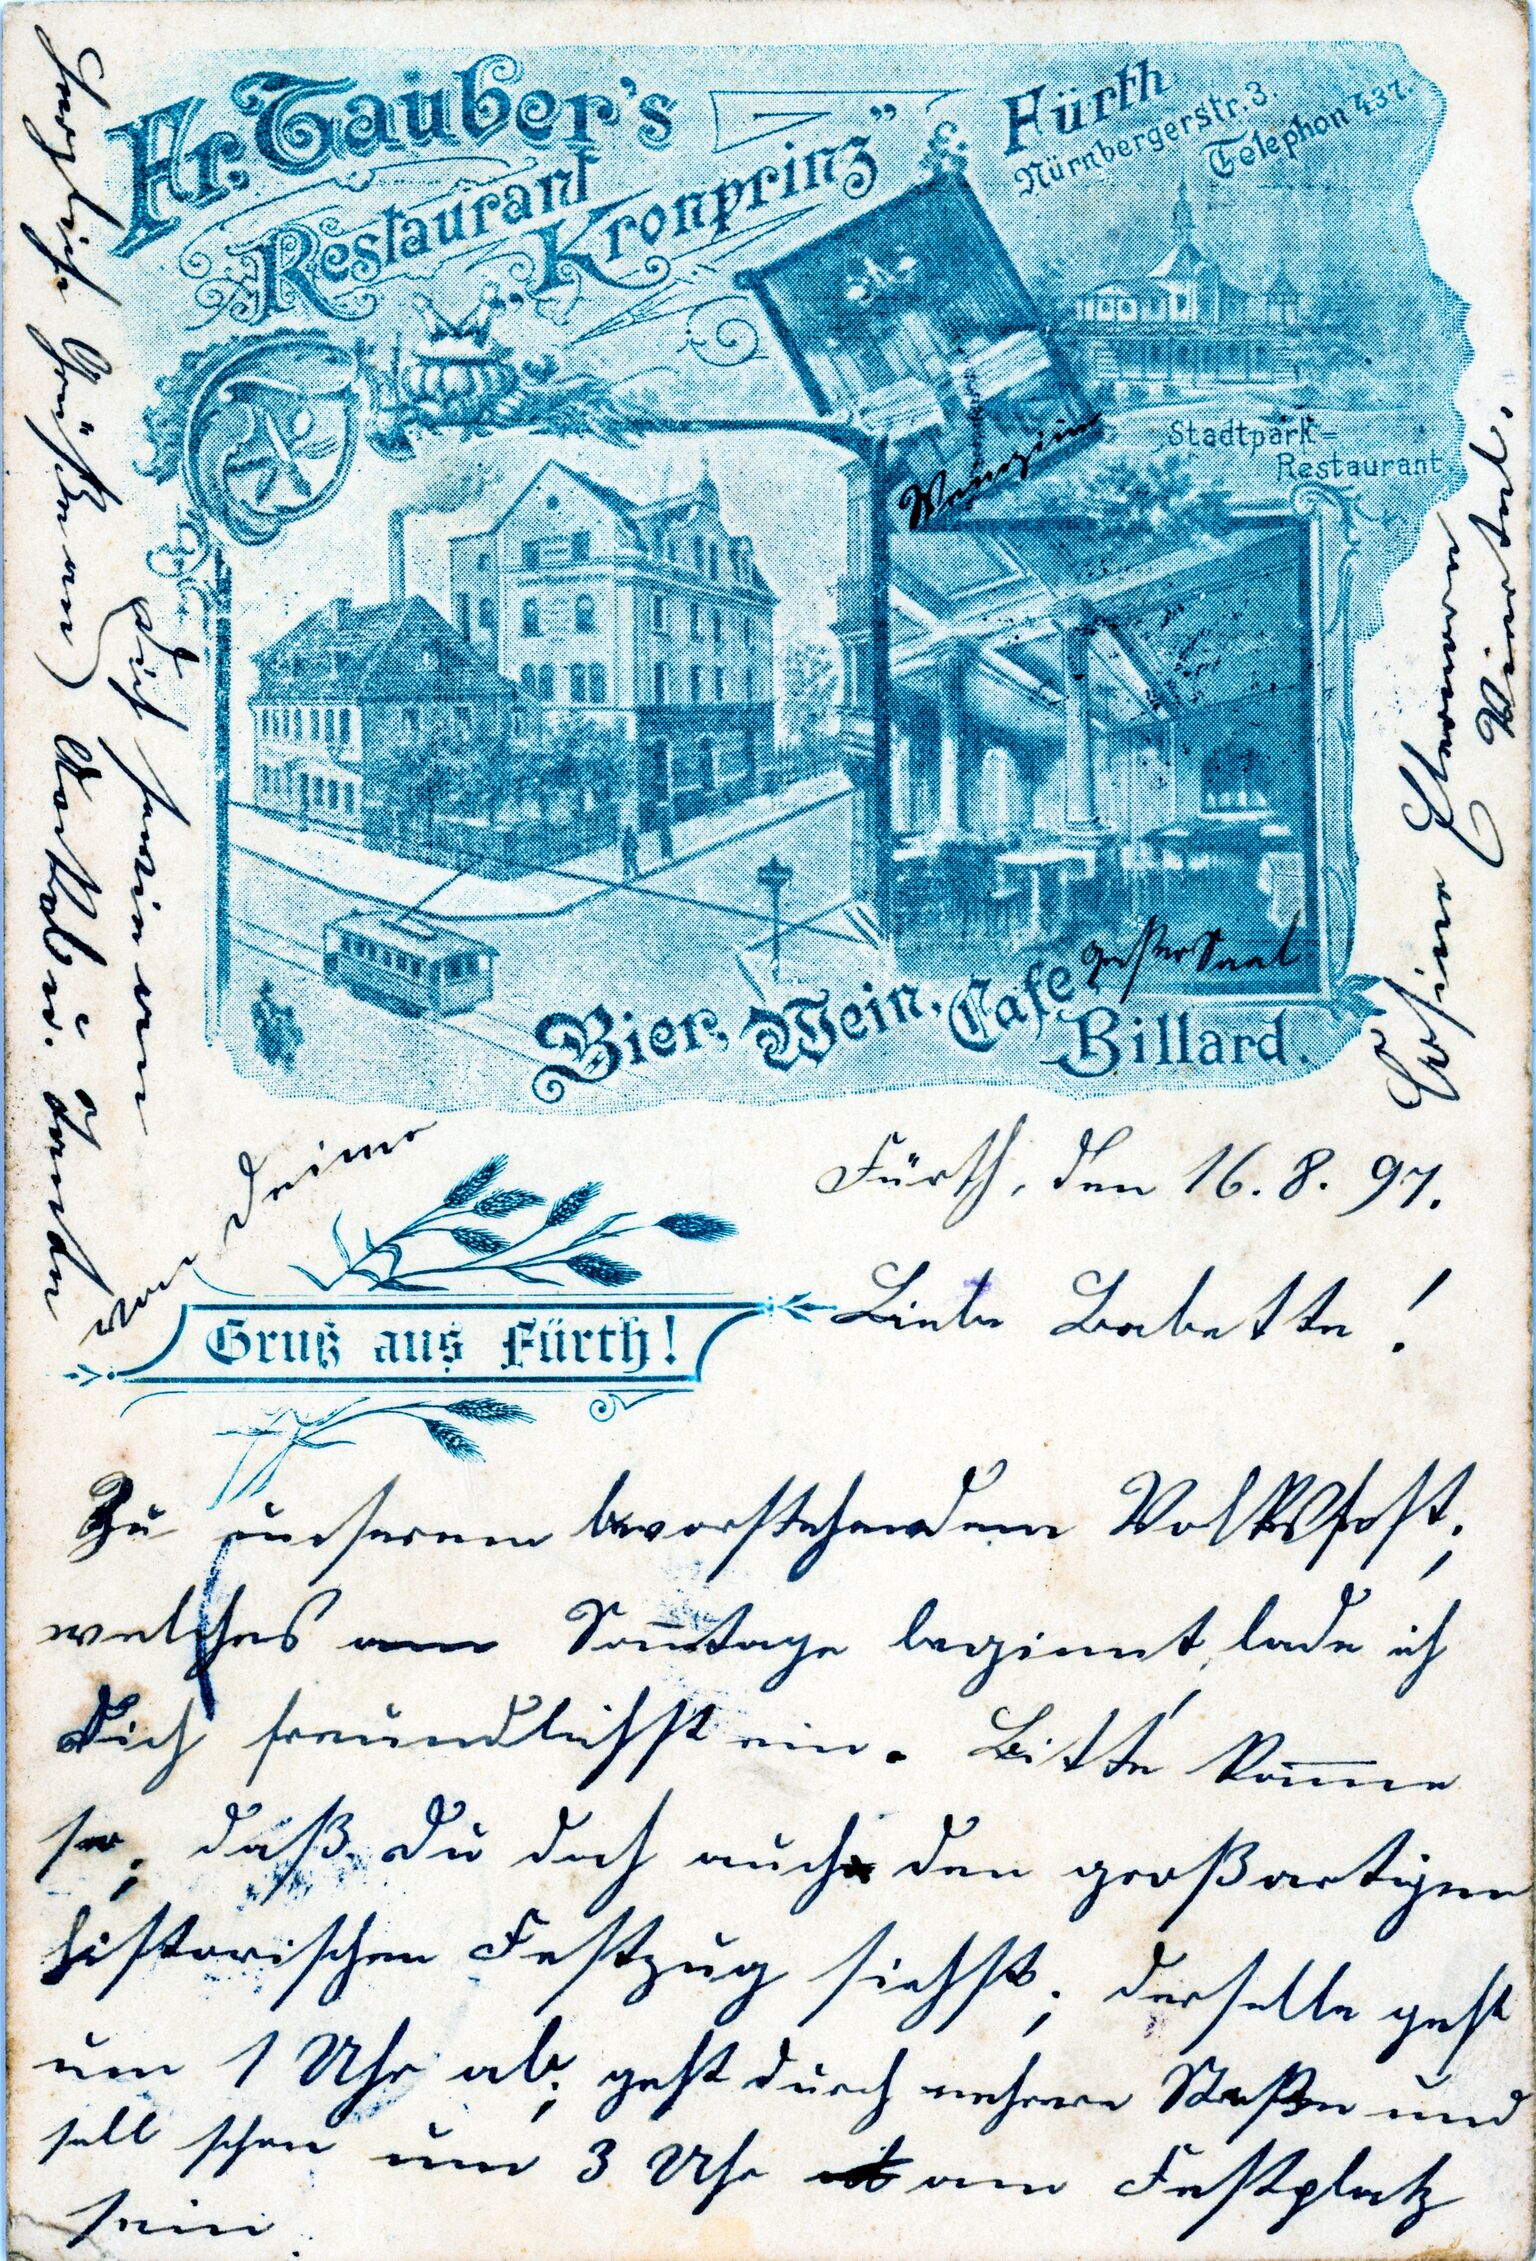 Fr. Tauber's
Restaurant
„Kronprinz”
Fürth
Nürnbergerstr. 3.
Telephon 437.
Stadtpark-
Restaurant
Weinzimmer
großer Saal
Bier, Wein, Cafe
Billard.
Gruß aus Fürth!
Fürth, den 16. 8. 97.
Liebe Babette!
Zu unserem bevorstehendem Volksfest,
welches am Sonntage beginnt, lade ich
Dich freundlichst ein. Bitte komme
so, daß Du doch auch den großartigen
historischen Festzug siehst, derselbe geht
um 1 Uhr ab, geht durch mehrere Straßen und
soll schon um 3 Uhr am Festplatz
sein.
Herzliche Grüße an
Dich sowie von
von Deiner